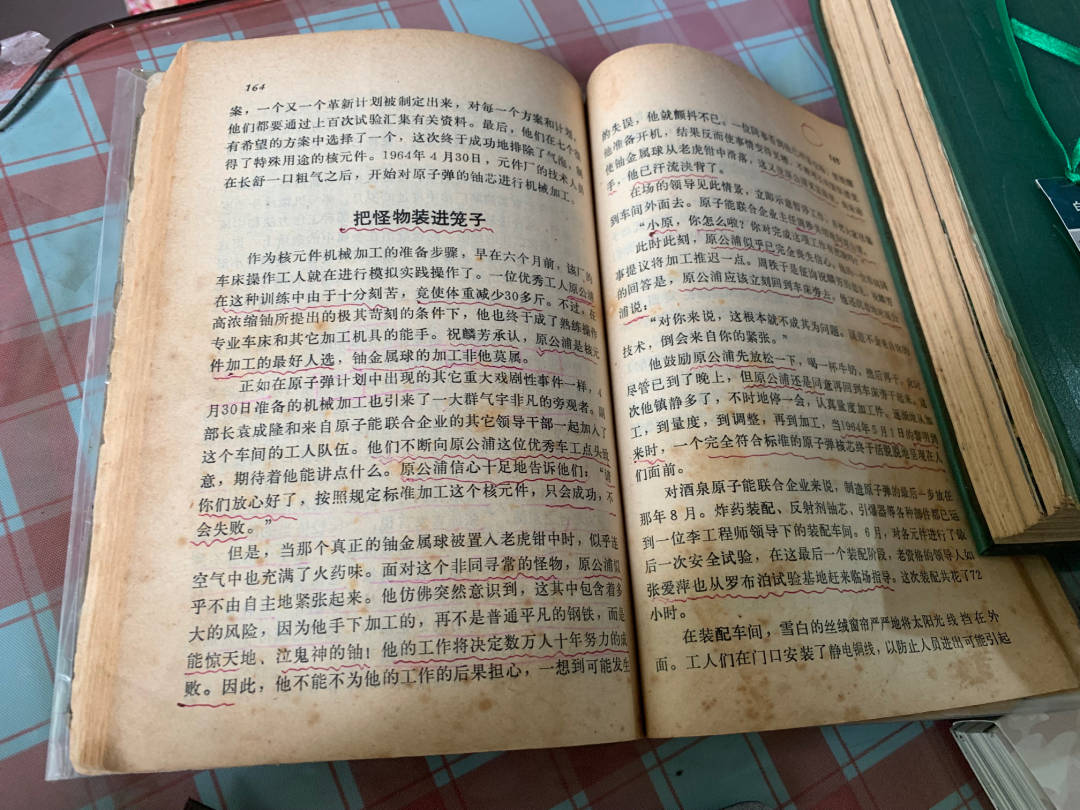 164
案，一个又一个革新计划被制定出来，对每一个方案和计划，
他们都要通过上百次试验汇集有关资料。最后，他们在七个很
有希望的方案中选择了一个，这次终于成功地排除了气泡，制
得了特殊用途的核元件。1964年4月30日，元件厂的技术人员
在长舒一口粗气之后，开始对原子弹的铀芯进行机械加工。
把怪物装进笼子
作为核元件机械加工的准备步骤，早在六个月前，该厂的
车床操作工人就在进行模拟实践操作了。一位优秀工人原公浦
在这种训练中由于十分刻苦，竟使体重减少30多斤。不过，在
高浓缩铀所提出的极其苛刻的条件下，他也终于成了熟练操作
专业车床和其它加工机具的能手。祝麟芳承认，原公浦是核元
件加工的最好人选，铀金属球的加工非他莫属。
正如在原子弹计划中出现的其它重大戏剧性事件一样，4
月30日准备的机械加工也引来了一大群气宇非凡的旁观者。副
部长袁成隆和来自原子能联合企业的其它领导干部一起加入了
这个车间的工人队伍。他们不断向原公浦这位优秀车工点头致
意，期待着他能讲点什么。原公浦信心十足地告诉他们：“请
你们放心好了，按照规定标准加工这个核元件，只会成功，不
会失败。”
但是，当那个真正的铀金属球被置入老虎钳中时，似乎连
空气中也充满了火药味。面对这个非同寻常的怪物，原公浦似
乎不由自主地紧张起来。他仿佛突然意识到，这其中包含着多
大的风险，因为他手下加工的，再不是普通平凡的钢铁，而是
能惊天地、泣鬼神的铀！他的工作将决定数万人十年努力的成
败。因此，他不能不为他的工作的后果担心，一想到可能发生
165
的失误，他就颤抖不已。一位同事
他准备开机，结果反而使事情变得更糟，
使铀金属球从老虎钳中滑落，这又使原公浦
手，他已汗流浃背了。
在场的领导见此情景，立即示意暂停工作，
到车间外面去。原子能联合企业主任周秩
“小原，你怎么啦？你对完成这项工作有把握吗？”
此时此刻，原公浦似乎已完全丧失信心，
事提议将加工推迟一点。周秩于是征询祝麟芳的意见，祝麟芳
的回答是，原公浦应该立刻回到车床旁去，
浦说：
“对你来说，这根本就不成其为问题。
技术，倒会来自你的紧张。”
他鼓励原公浦先放松一下，喝一杯牛奶，然后再干。
尽管已到了晚上，但原公浦还是同意再回到车床旁干起来。这
次他镇静多了，不时地停一会，认真量度加工件。
工，到量度，到调整，再到加工，当1964年5月1日的黎明到
来时，一个完全符合标准的原子弹核芯终于活脱脱地呈现在人
们面前。
对酒泉原子能联合企业来说，制造原子弹的最后一步放在
那年8月。炸药装配、反射剂铀芯、引爆器等各种部件都已运
到一位李工程师领导下的装配车间。6月，对各元件进行了最
后一次安全试验，在这最后一个装配阶段，老资格的领导人如
张爱萍也从罗布泊试验基地赶来临场指导。这次装配共花了72
小时。
在装配车间，雪白的丝绒窗帘严严地将太阳光线挡在外
面。工人们在门口安装了静电铜线，以防止人员进出可能引起